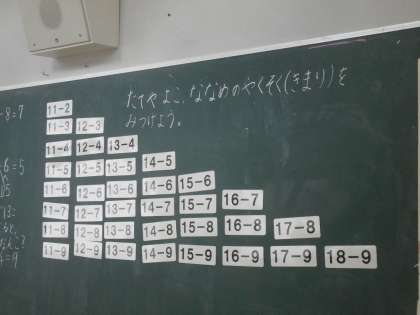 たてやよこ、ななめのやくそく(きまり)を
みつけよう。
-8=7
11-2
11-3 12-3
11-4 12-4 13-4
11-5 12-5 13-5 14-5
11-6 12-6 13-6 14-6 15-6
11-7 12-7 13-7 14-7 15-7 16-7
11-8 12-8 13-8 14-8 15-8 16-8 17-8
11-9 12-9 13-9 14-9 15-9 16-9 17-9 18-9
-6=5
=9